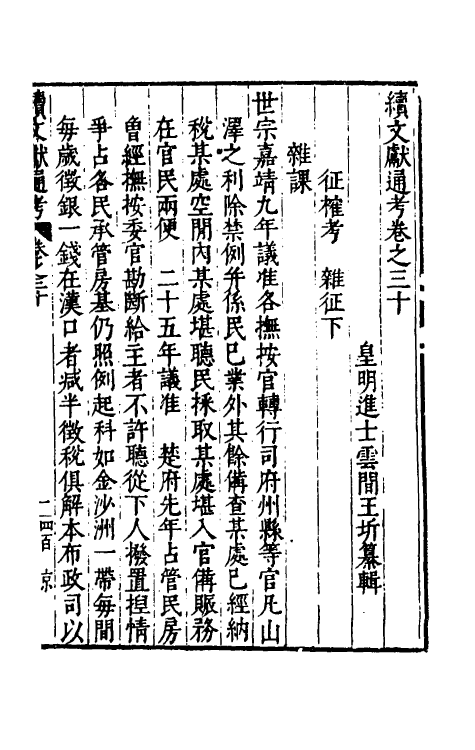 續文獻通考卷之三十
皇明進士雲間王圻纂輯
征榷考　雜征下
雜課
世宗嘉靖九年議准各撫按官轉行司府州縣等官凡山
澤之利除禁例并係民已業外其餘備查某處已經納
稅某處空閒內某處堪聽民採取某處堪入官備賑務
在官民兩便　二十五年議准　楚府先年占管民房
曾經撫按委官勘斷給主者不許聽從下人撥置捏情
爭占各民承管房基仍照例起科如金沙洲一帶每間
每歲徵銀一錢在漢口者减半徵稅俱解本布政司以
續文獻通考　卷之三十